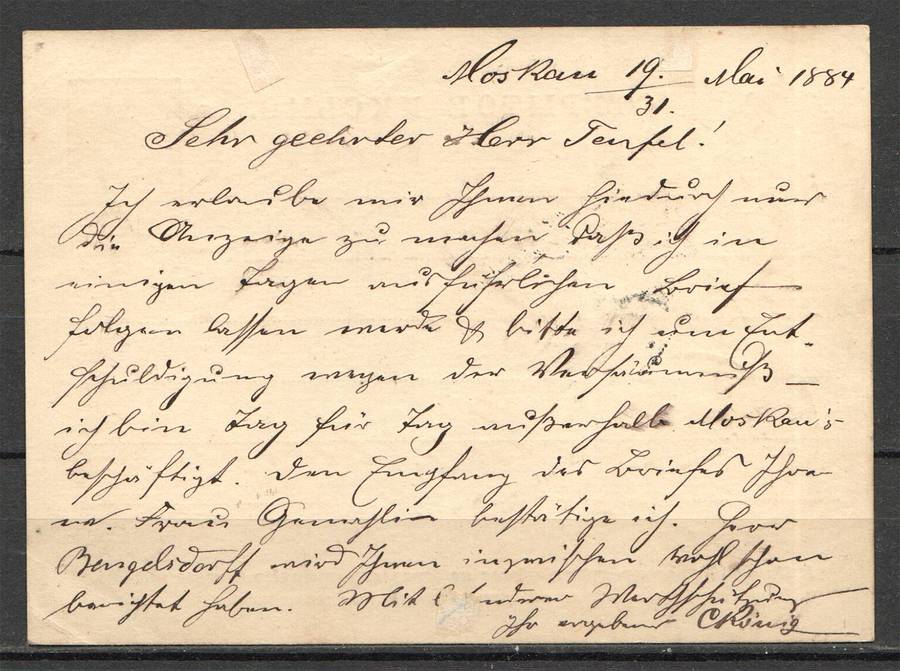 Moskau 19./31. Mai 1884
Sehr geehrter Herr Teufel!
Ich erlaube mir Ihnen hiedurch nur
die Anzeige zu machen daß ich in
einigen Tagen ausführlichen Brief
folgen lassen werde & bitte ich um Ent-
schuldigung wegen der Versäumniß –
ich bin Tag für Tag außerhalb Moskau's
beschäftigt. Den Empfang des Briefes Ihre
w. Frau Gemahlin bestätige ich. Herr
Bengelsdorff wird Ihnen inzwischen wohl schon
berichtet haben. Mit Werthschätzung
Ihr ergebener CKönig